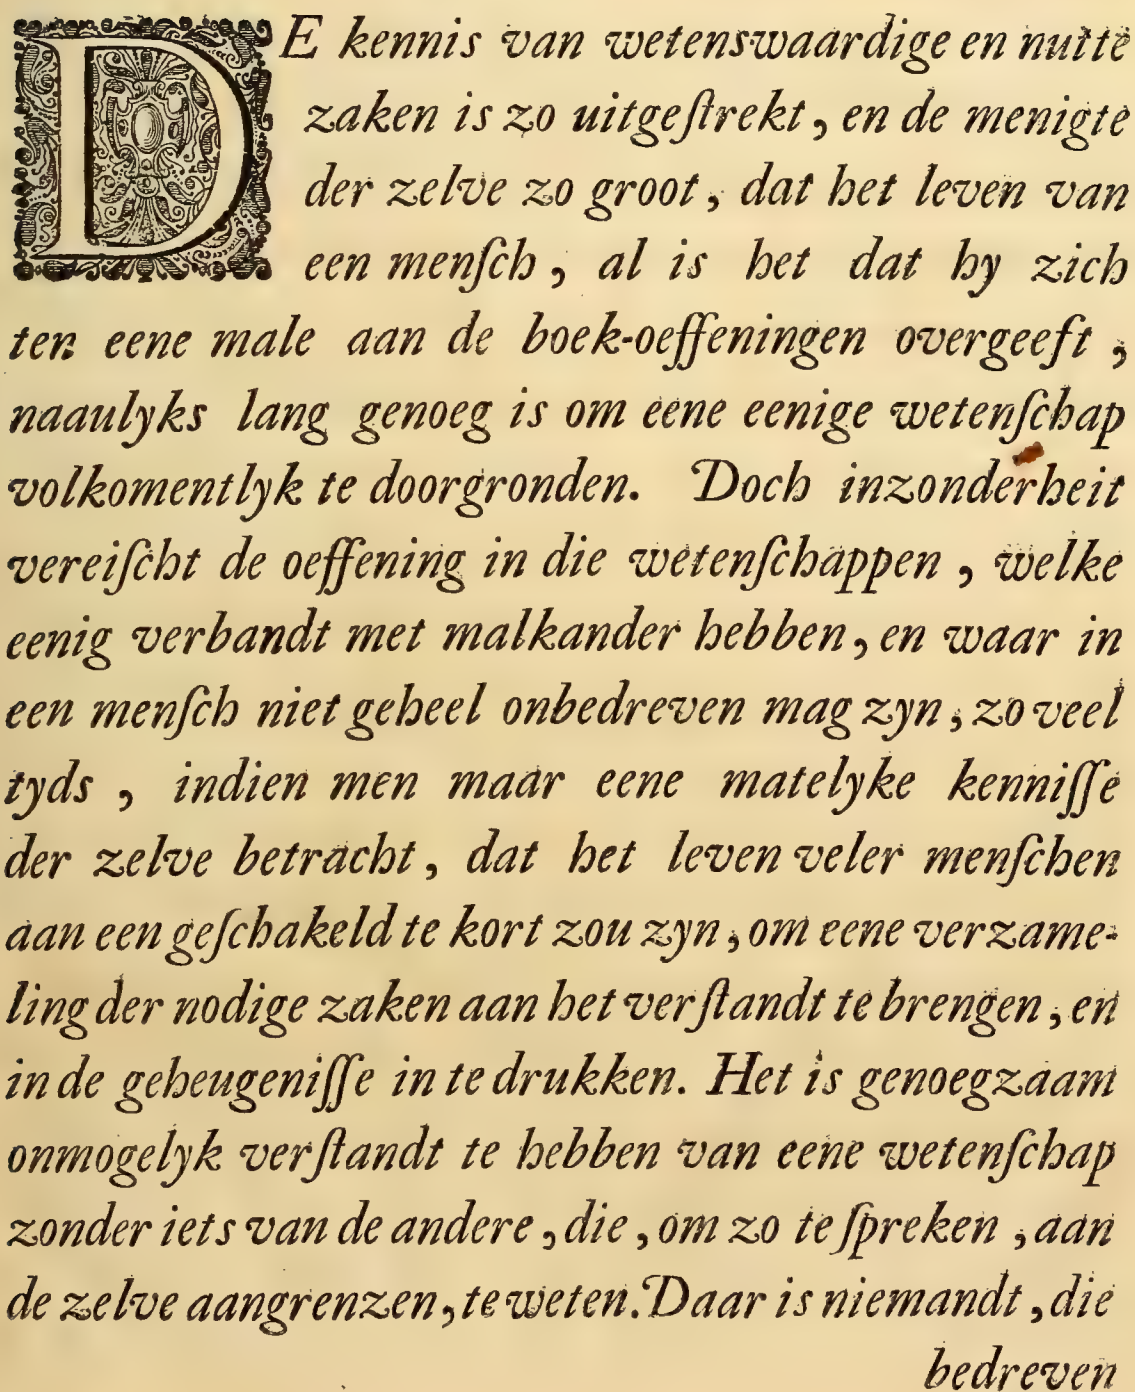 DE kennis van wetenswaardige en nutte
zaken is zo uitgeſtrekt, en de menigte
der zelve zo groot, dat het leven van
een menſch, al is het dat hy zich
ten eene male aan de boek-oeffeningen overgeeft,
naaulyks lang genoeg is om eene eenige wetenſchap
volkomentlyk te doorgronden. Doch inzonderheit
vereiſcht de oeffening in die wetenſchappen, welke
eenig verbandt met malkander hebben, en waar in
een menſch niet geheel onbedreven mag zyn, zo veel
tyds, indien men maar eene matelyke kenniſſe
der zelve betracht, dat het leven veler menſchen
aan een geſchakeld te kort zou zyn, om eene verzame-
ling der nodige zaken aan het verſtandt te brengen, en
in de geheugeniſſe in te drukken. Het is genoegzaam
onmogelyk verſtandt te hebben van eene wetenſchap
zonder iets van de andere, die, om zo te ſpreken, aan
de zelve aangrenzen, te weten. Daar is niemandt, die
bedreven